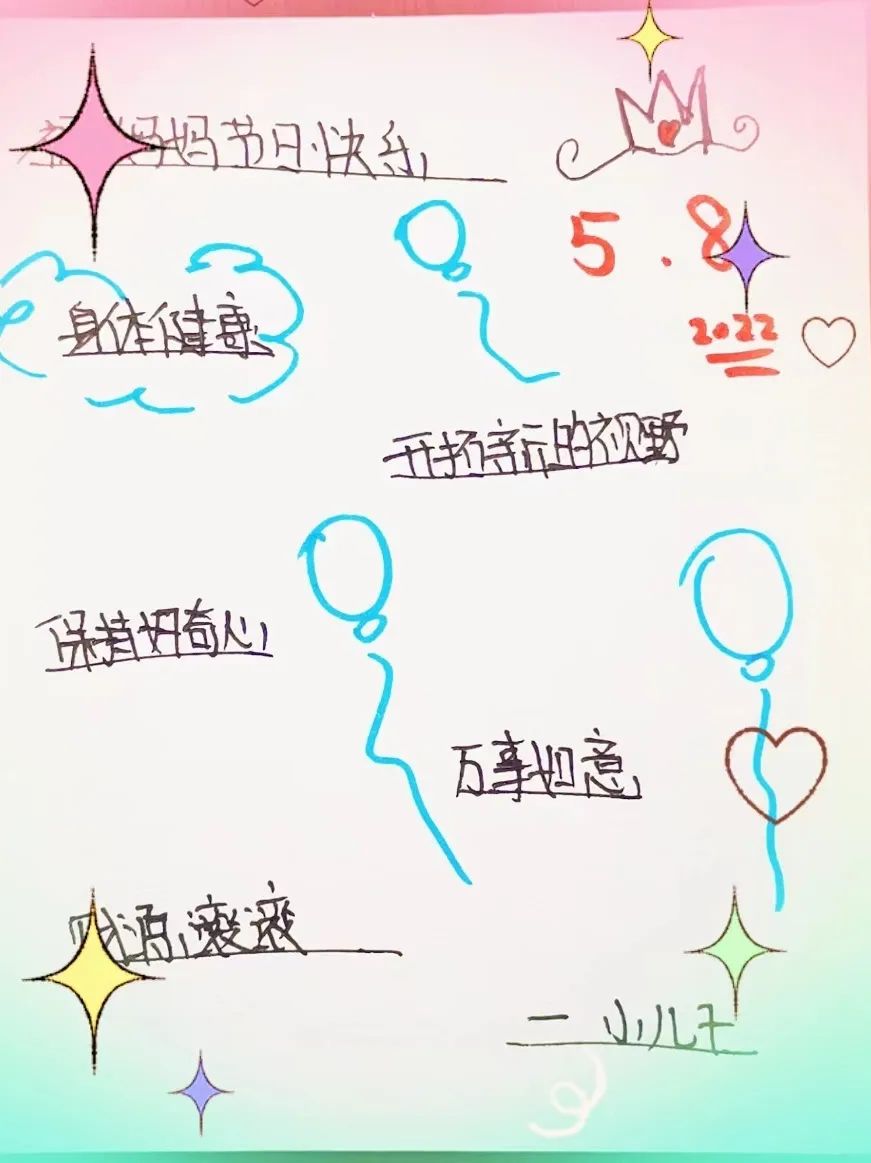 妈妈节日快乐
5.8
2022
身体健康
开拓新的视野
保持好奇心
万事如意
财源滚滚
— 小儿子